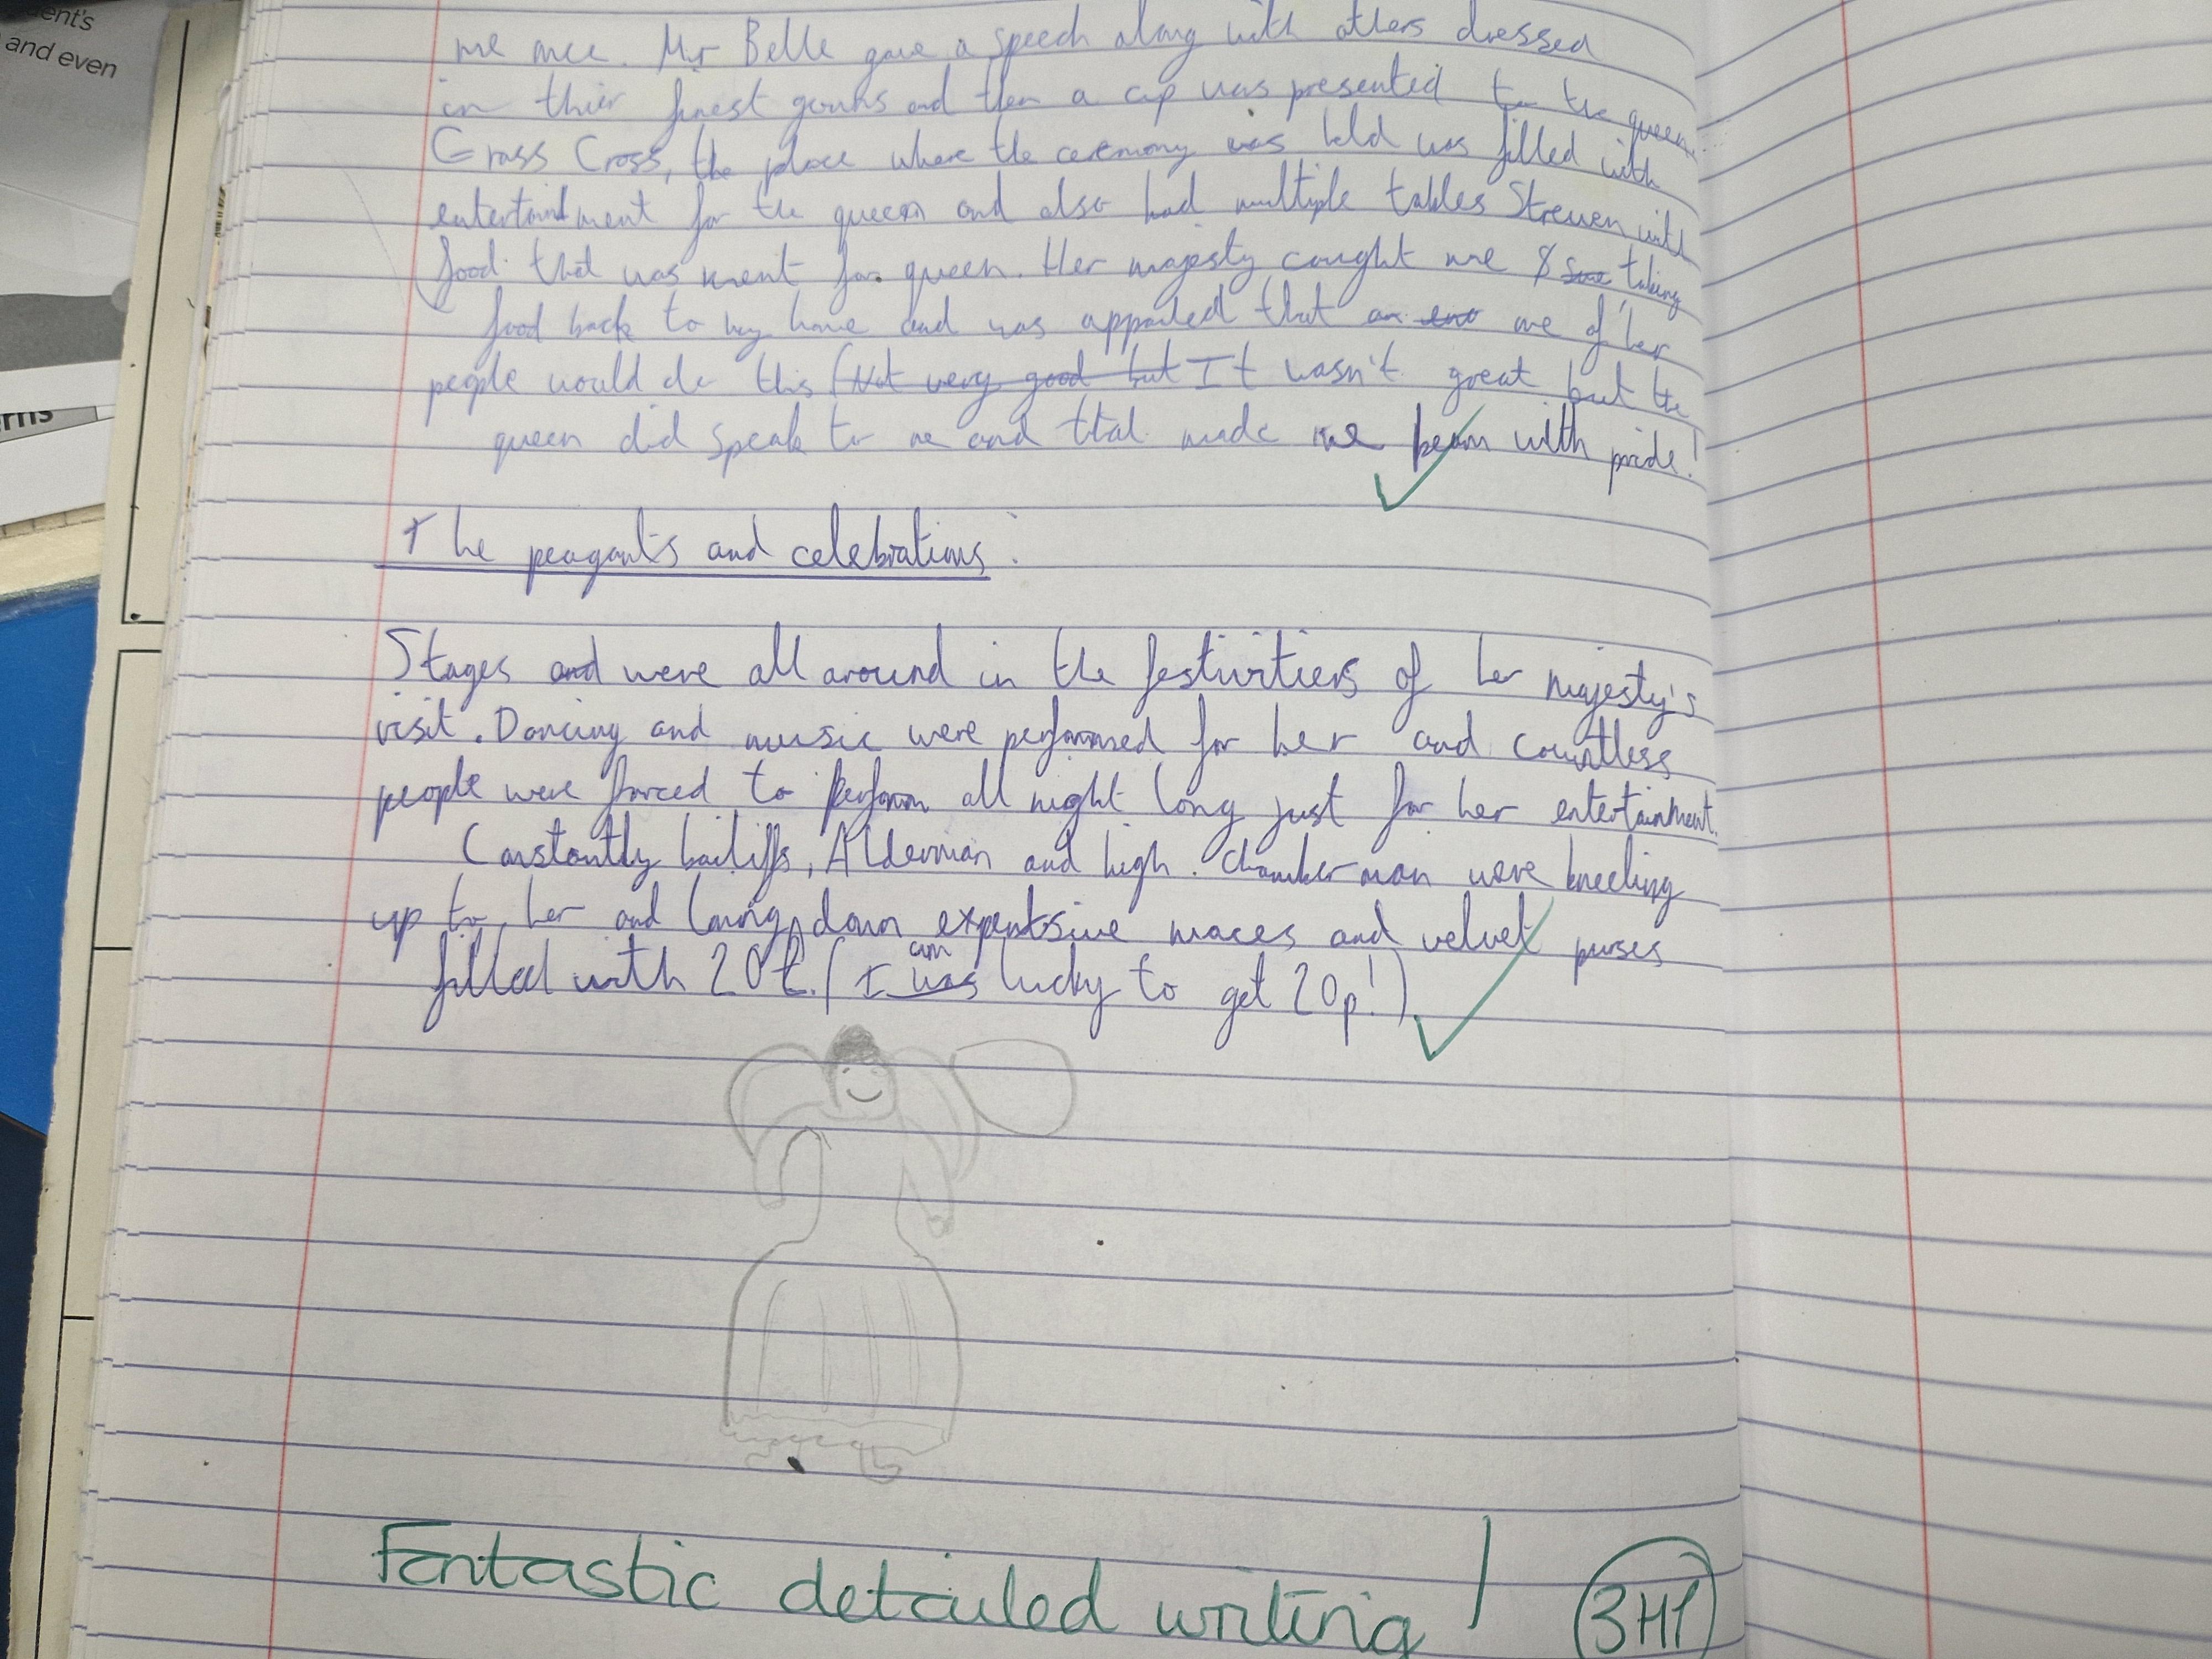 ent's
and even
erns
me once. Mr Belle gave a speech along with others dressed
in thier finest gowns and then a cup was presented to the queen.
Grass Cross, the place where the ceremony was held was filled with
entertaintment for the queen and also had multiple tables Strewen with
food that was ment for queen. Her majesty caught me taking
food back to my home and was appauled that one of her
people would do this (Not very good but It wasn't great but the
queen did speak to me and that made me beam with pride!
The peagants and celebrations:
Stages and were all around in the festivitiers of her majesty's
visit. Dancing and music were performed for her and countless
people were forced to perform all night long just for her entertainment.
Constantly bailiffs, Alderman and high. Chamberman were kneeling
up to her and laying down expentsive maces and velvet purses
filled with 20£. (I was am lucky to get 20p!).
Fantastic detailed writing!
3HP